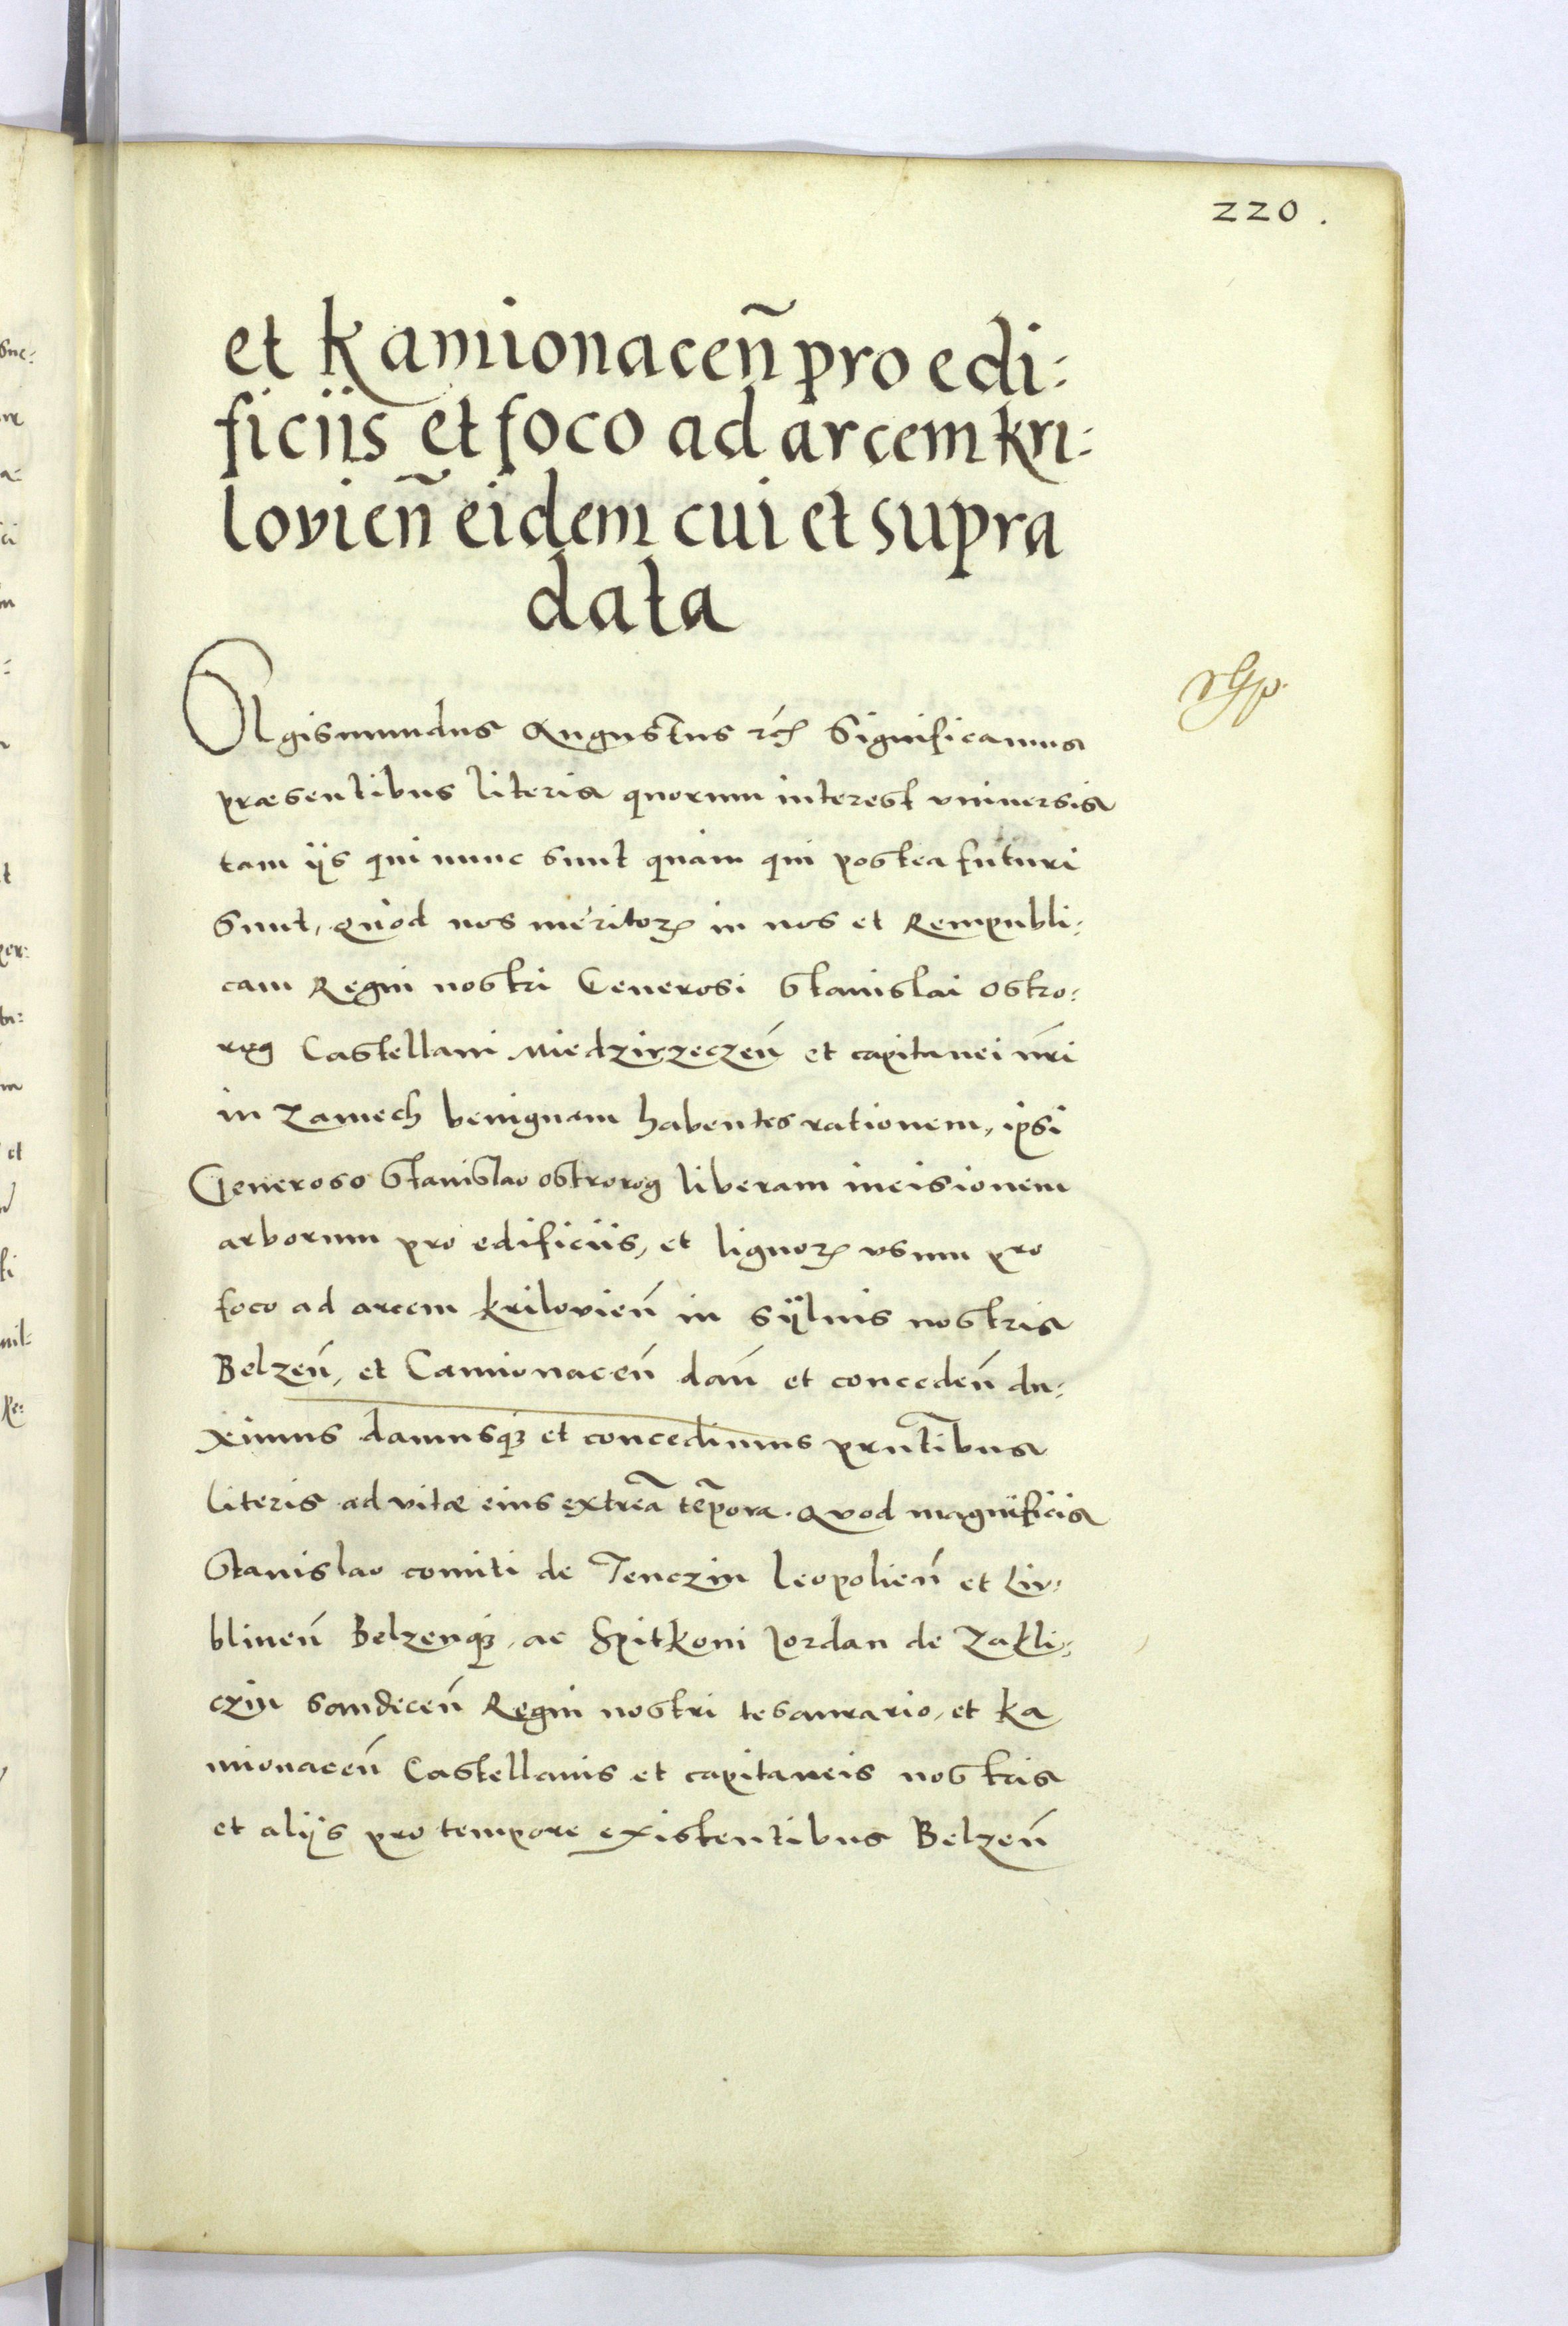 220.
et Kamionacen̄ pro edi:
ficijs et foco ad arcem kri:
lovien̄ eidem cui et supra
data
Sigismundus Augustus rc̄ Significamus
præsentibus literis quorum interest vniuersis
tam ijs qui nunc sunt quam qui postea futuri
sunt, quod nos meritorꝝ in nos et Rempubli:
cam Regni nostri Generosi Stanislai Ostro:
rog Castellani Miedzirzeczen̄ et capitanei nr̄i
in Zamech benignam habentes rationem, ipsi
Generoso Stanislao Ostrorog liberam incisionem
arborum pro edificiis, et lignorꝝ vsum pro
foco ad arcem krilovien̄ in sÿluis nostris
Belzen̄, et Camionacen̄ dan̄ et conceden̄ du:
ximus damusqꝫ et concedimus prn̄tibus
literis ad vitæ eius extrea̅ te̅pora. Quod magnificis
Stanislao comiti de Tenczin Leopolien̄ et Lu:
blinen̄ Belzenqꝫ, ac Spitkoni Jordan de Zakli:
czin Sandecen̄ Regni nostri tesaurario, et Ka
mionacen̄ Castellanis et capitaneis nostris
et alijs pro tempore existentibus Belzen̄